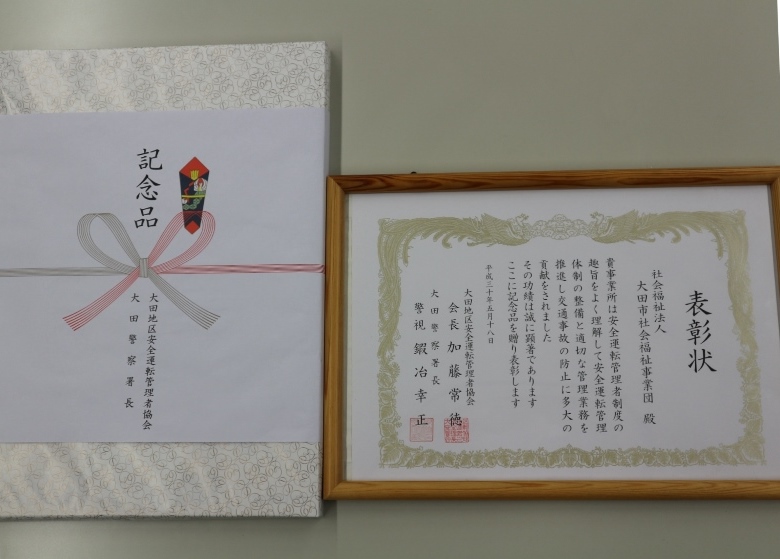 記念品
大田地区安全運転管理者協会
大田警察署長
表彰状
社会福祉法人
大田市社会福祉事業団 殿
貴事業所は安全運転管理者制度の
趣旨をよく理解して安全運転管理
体制の整備と適切な管理業務を
推進し交通事故の防止に多大の
貢献をされました
その功績は誠に顕著であります
ここに記念品を贈り表彰します
平成三十年五月十八日
大田地区安全運転管理者協会
会長 加藤常徳
大田警察署長
警視 鍜冶幸正